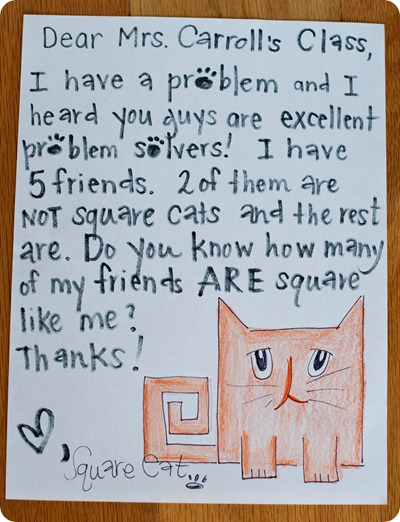 Dear Mrs. Carroll's Class,
I have a problem and I
heard you guys are excellent
problem solvers! I have
5 friends. 2 of them are
NOT square cats and the rest
are. Do you know how many
of my friends ARE square
like me?
Thanks!
, Square Cat